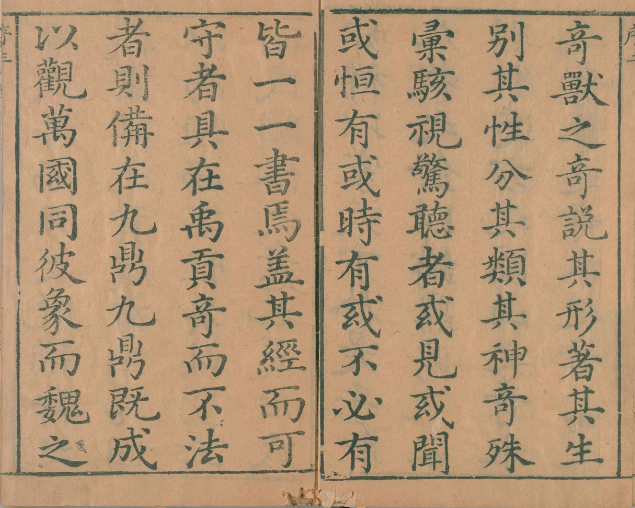 奇獸之奇說其形著其生
別其性分其類其神奇殊
彙駭視驚聽者或見或聞
或恒有或時有或不必有
皆一一書焉盖其經而可
守者具在禹貢竒而不法
者則備在九鼎九鼎既成
以觀萬國同彼象而魏之